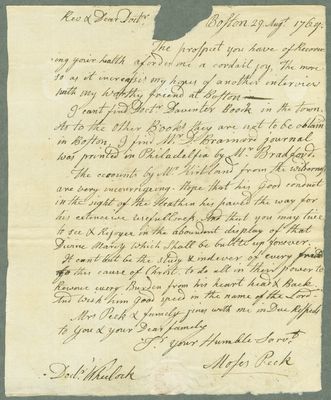 Rev & Dear Doctr
Boston 29 Augt 1769.
The prospect you have of Recover
ing your health afordes me a cordail joy. The more
so as it increases my hopes of another interview
with my worthy friend at Boston
I cant find Doctr Daventer Book in the town.
As to the other Books they are not to be obtain
in Boston, I find Mr D. Branard journal
was printed in Philadelfia by Mr Bradford.
The accounts by Mr Kirtland from the wilderness
are very incouriging. Hope that his Good conduct
in the sight of the Heathen has paved the way for
his extencive usefullness. And that you may live
to see & Rejoyce in the aboundent display of that
Devine Marcy which shall be built up forever.
It cant but be the study & indever of every friend
to this cause of Christ. to do all in their power to
Remove every Burden from his heart head & Back
And wish him Good speed in the name of the Lord.
Mrs Peck & famely joins with me in Due Respects
to You & your Dear famely
Sr your Humble Sarvt
Moses Peck
Doctr Wheelock